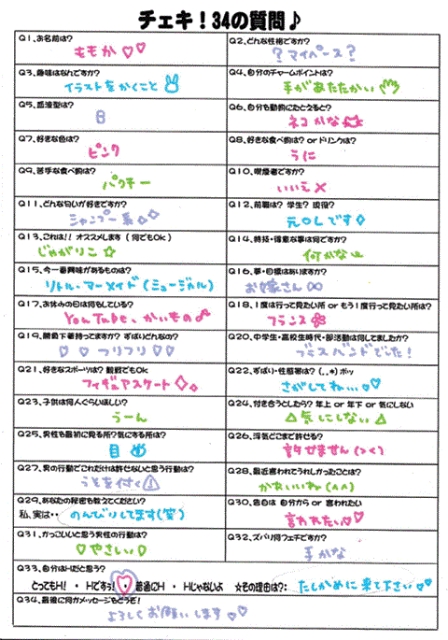 チェキ！34の質問♪
Q1、お名前は？
ももか ♡♡
Q2、どんな性格ですか？
？マイペース？
Q3、趣味はなんですか？
イラストをかくこと
Q4、自分のチャームポイントは？
手があたたかい
Q5、血液型は？
B
Q6、自分を動物にたとえると？
ネコかな
Q7、好きな色は？
ピンク
Q8、好きな食べ物は？ or ドリンクは？
うに
Q9、苦手な食べ物は？
パクチー
Q10、喫煙者ですか？
いいえ×
Q11、どんな匂いが好きですか？
シャンプー系
Q12、前職は？ 学生？ 現役？
元OLです
Q13、これは！！ オススメします （何でもOk）
じゃがりこ☆
Q14、特技・得意な事は何ですか？
何かな
Q15、今一番興味があるものは？
リトル・マーメイド（ミュージカル）
Q16、夢・目標はありますか？
お嫁さん
Q17、お休みの日は何をしている？
YouTube、かいもの
Q18、1度は行って見たい所 or もう1度行って見たい所は？
フランス
Q19、勝負下着持ってますか？ ずばりどんなの？
♡♡フリフリ♡♡
Q20、中学生・高校生時代・部活動は何してましたか？
ブラスバンドでした！
Q21、好きなスポーツは？ 観戦でもOk
フィギュアスケート
Q22、ずばり・性感帯は？ (,,*) ポッ
さがしてね…♡♡
Q23、子供は何人ぐらいほしい？
うーん
Q24、付き合うとしたら？ 年上 or 年下 or 気にしない
△気にしない△
Q25、男性を最初に見る所？気にする所は？
目
Q26、浮気どこまで許せる？
許せません（＞＜）
Q27、男の行動でこれだけは許せないと思う行動は？
うそを付く
Q28、最近言われてうれしかったことは？
かわいいね（^^）
Q29、あなたの秘密を教えてください？
私、実は・・ のんびりしてます（笑）
Q30、告白は 自分から or 言われたい
言われたい♡♡
Q31、かっこいいと思う男性の行動は？
♡やさしい♡
Q32、ズバリ何フェチですか？
手かな
Q33、自分はHだと思う？
とってもH！ ・ Hですっ！ ・ 普通にH ・ Hじゃないよ ☆その理由は？： たしかめに来て下さい♡♡
Q34、最後に何かメッセージをどうぞ！
よろしくお願いします♡♡